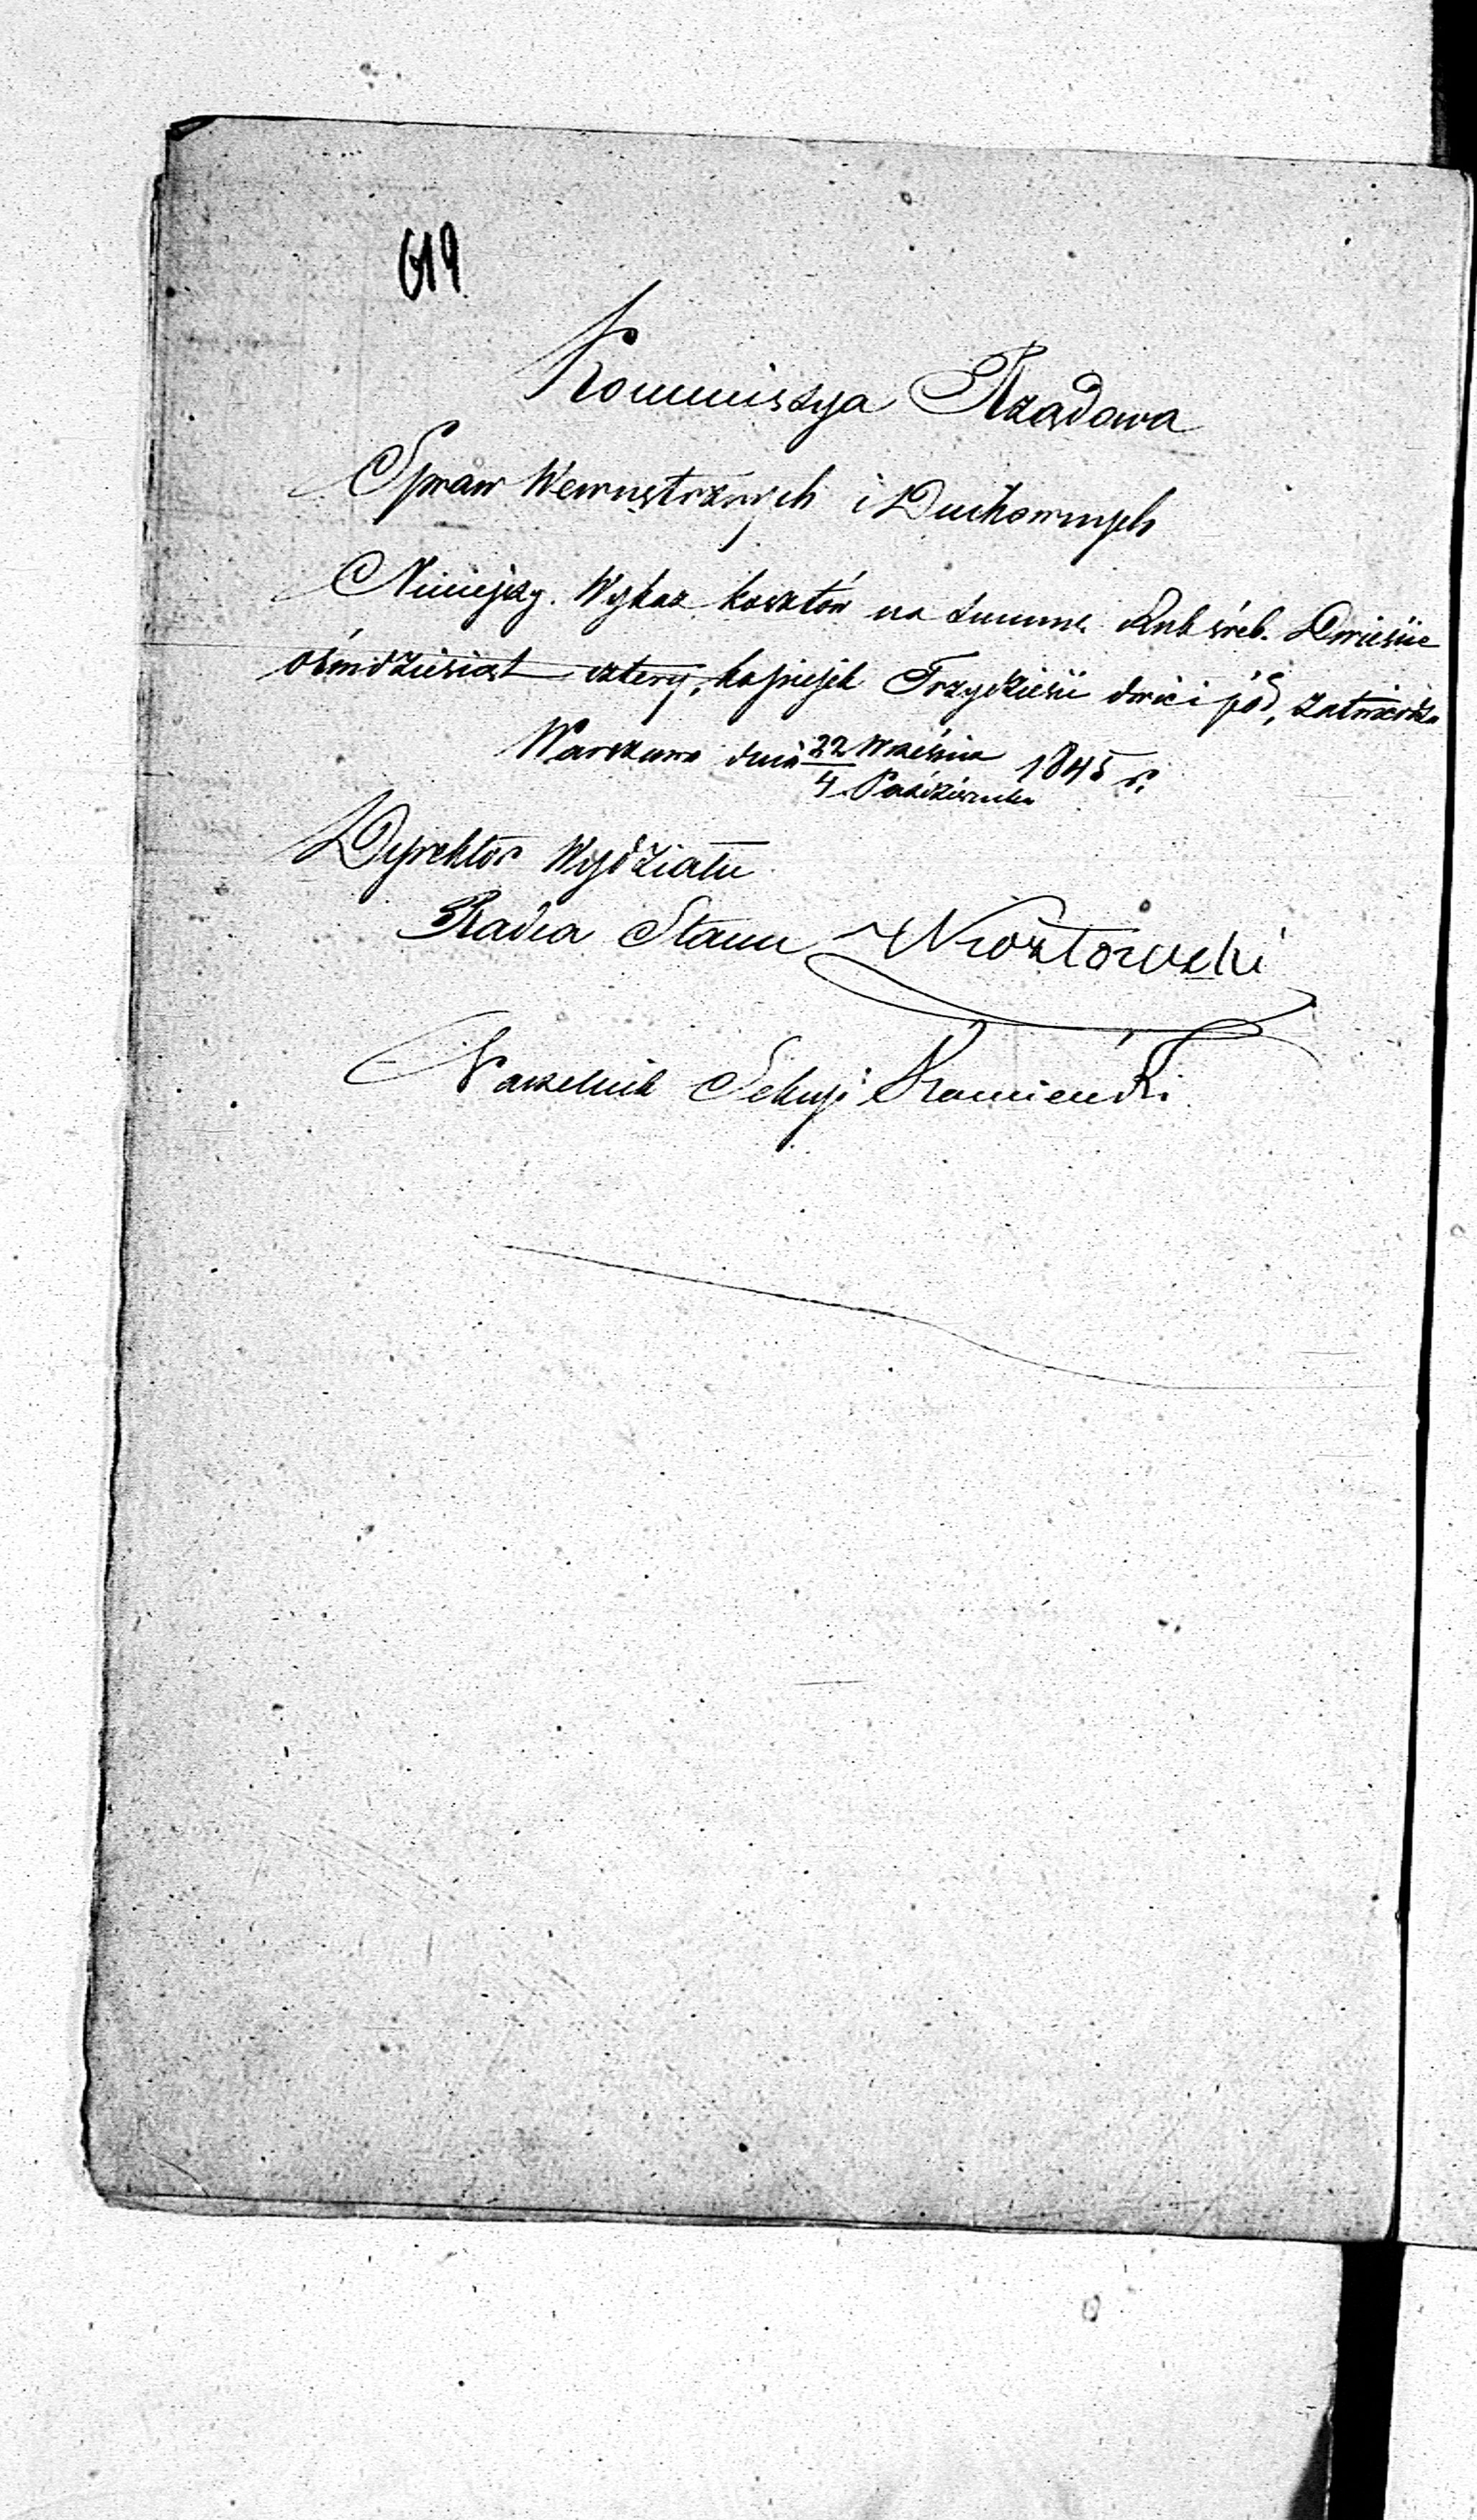 619
Kommissya Rządowa
Spraw Wewnętrznych i Duchownych
Niniejszy Wykaz kosztów na summę Rub śreb. Dwieście
ośmdziesiąt cztery, kopiejek Trzydzieści dwie i pół, zatwierdza
Warszawa dnia 22 Września 1845 r.
4 Października
Dyrektor Wydziału
Radca Stanu
Naczelnik Sekcyi Kamieński